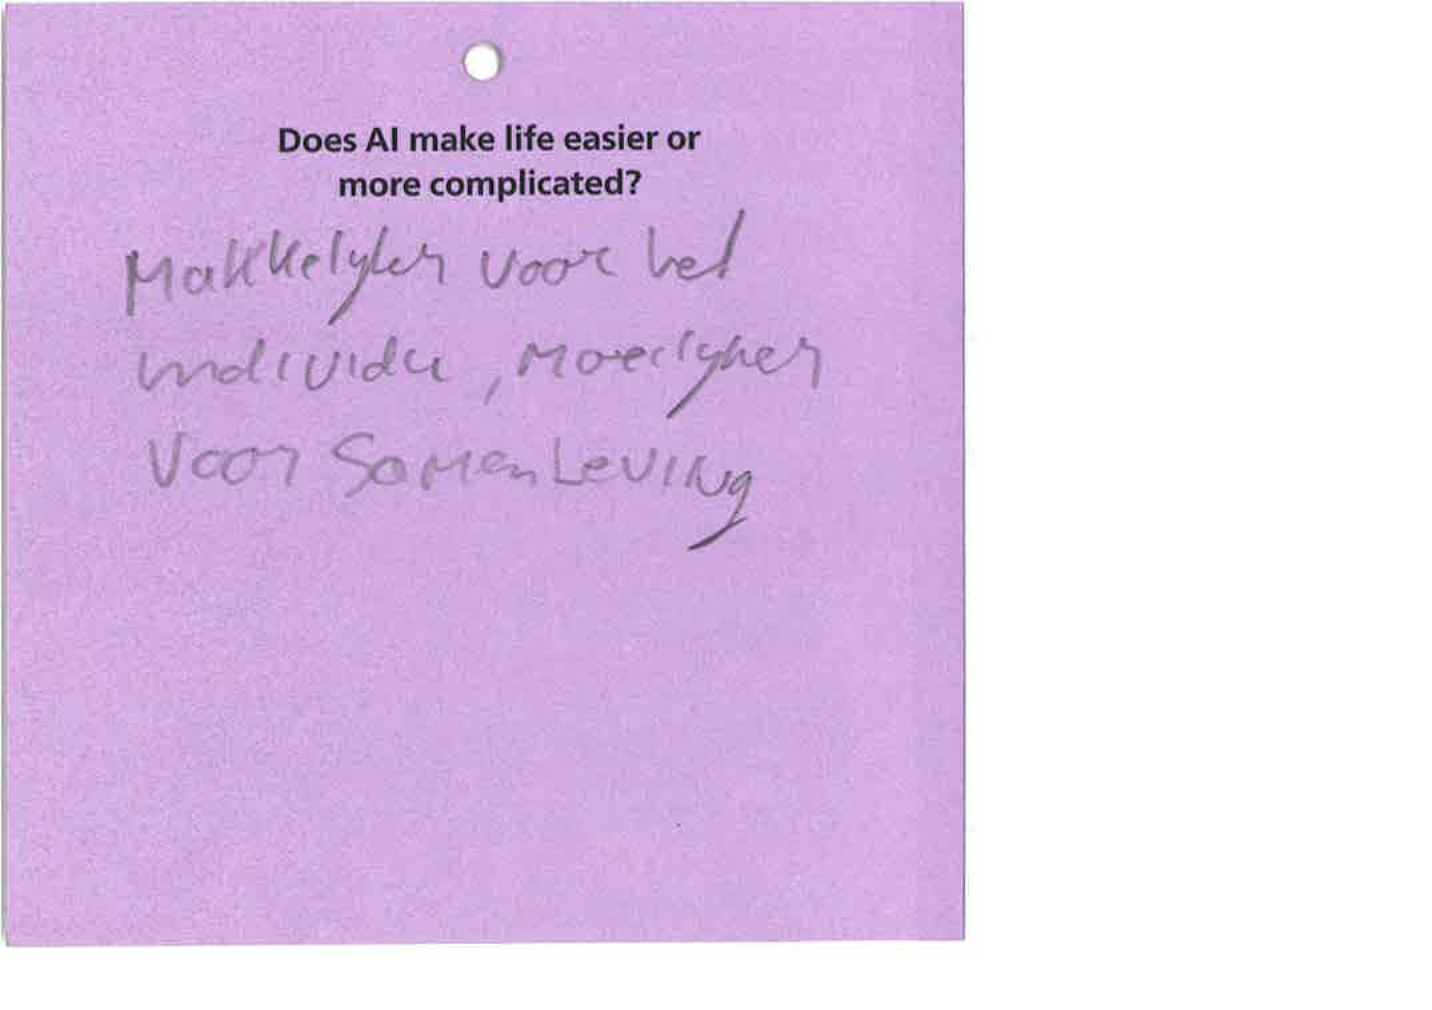 Does AI make life easier or
more complicated?
Makkelyker voor het
individu, moeilyker
voor samenleving